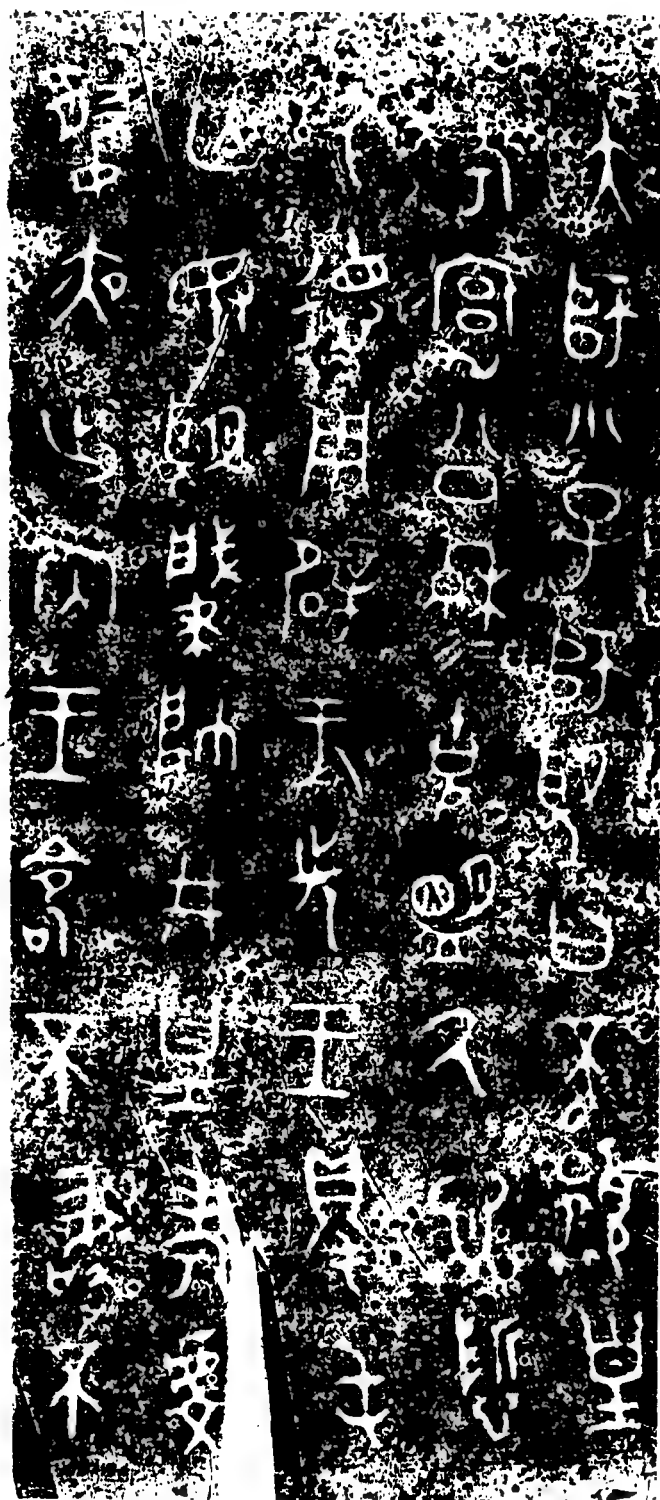 大師小子師望曰不顯皇
考宄公穆=克盟氒心悊
氒德用辟于先王得屯
亡敃望肇帥井皇考虔
夙夜出內王命不敢不